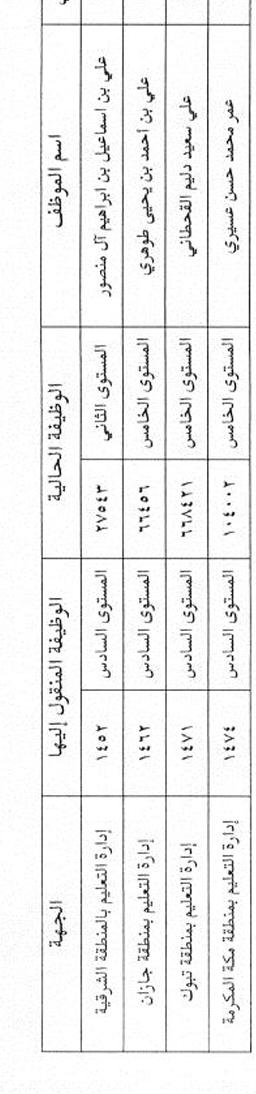 اسم الموظف الوظيفة الحالية الوظيفة المنقول إليها الجهة
علي بن اسماعيل بن ابراهيم آل منصور المستوى الثاني ٢٧٥٤٣ المستوى السادس ١٤٥٢ إدارة التعليم بالمنطقة الشرقية
علي بن أحمد بن يحيى طوهري المستوى الخامس ٦٦٤٥٦ المستوى السادس ١٤٦٢ إدارة التعليم بمنطقة جازان
علي سعيد دليم القحطاني المستوى الخامس ٦٦٨٤٢١ المستوى السادس ١٤٧١ إدارة التعليم بمنطقة تبوك
عمر محمد حسن عسيري المستوى الخامس ١٠٤٠٠٢ المستوى السادس ١٤٧٤ إدارة التعليم بمنطقة مكة المكرمة